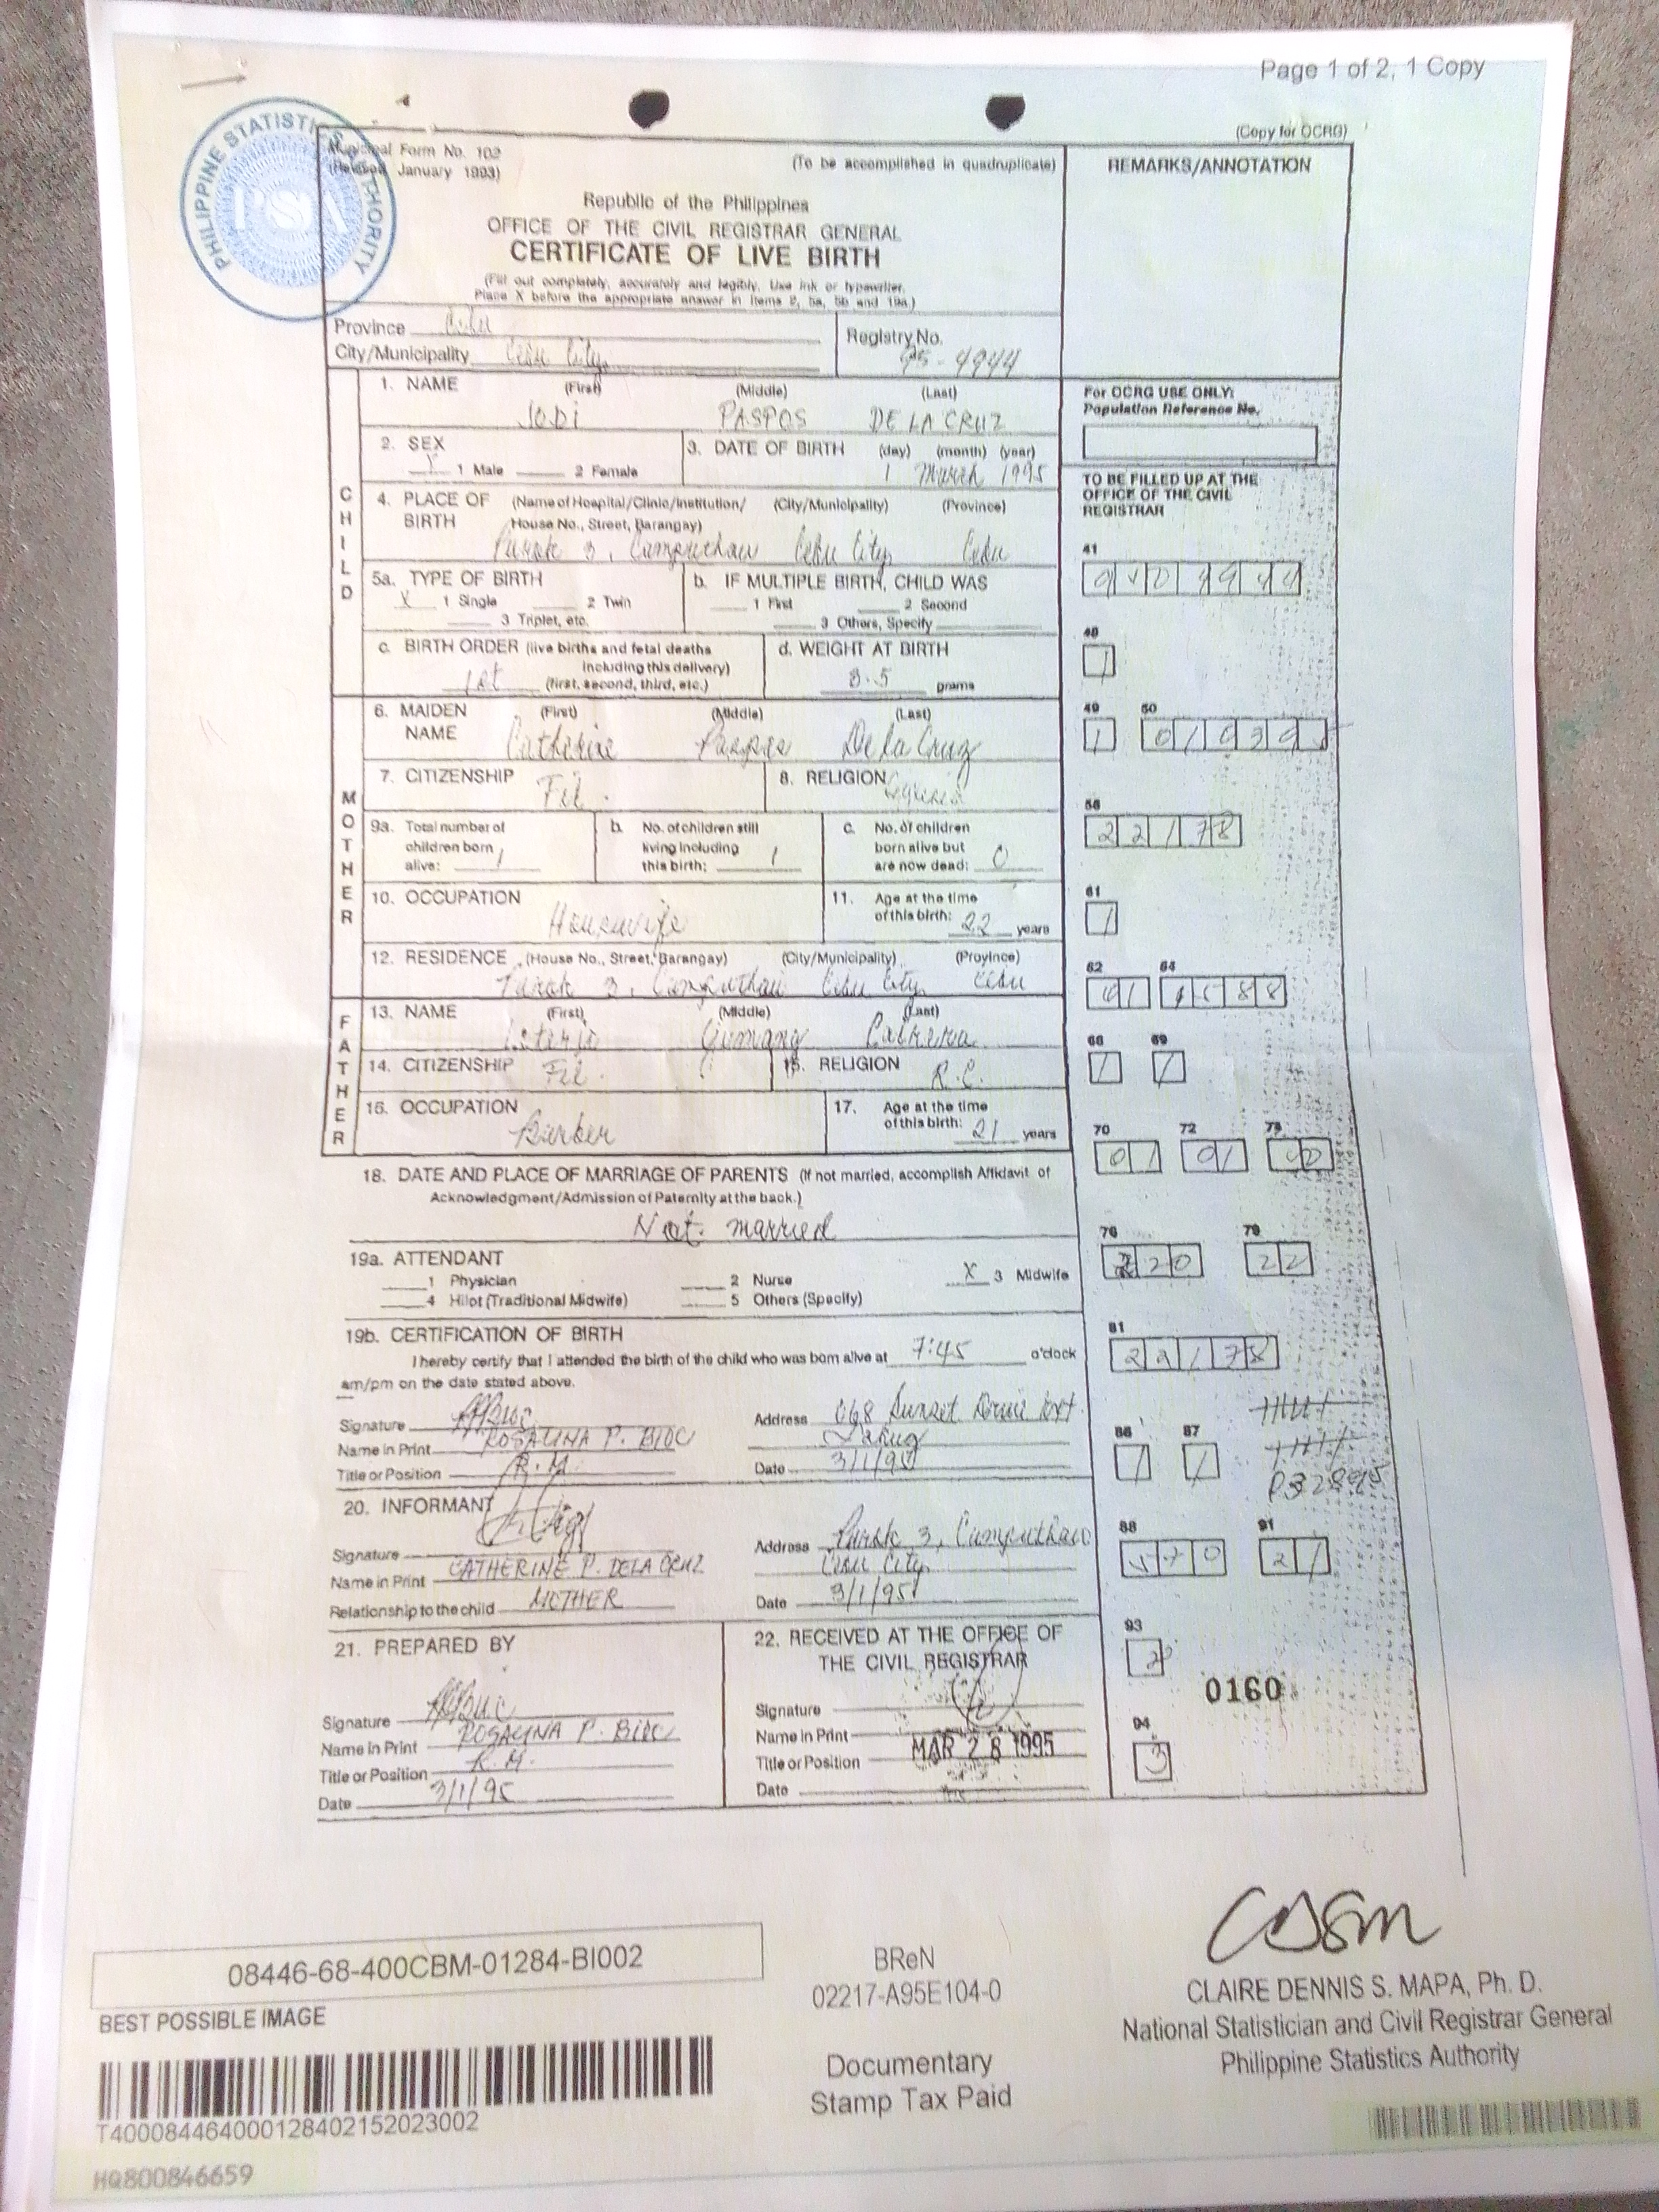 Page 1 of 2, 1 Copy
(Copy for OCRG)
PHILIPPINE STATISTICS AUTHORITY
PSA
Municipal Form No. 102
(To be accomplished in quadruplicate)
(Revised January 1993)
REMARKS/ANNOTATION
Republic of the Philippines
OFFICE OF THE CIVIL REGISTRAR GENERAL
CERTIFICATE OF LIVE BIRTH
(Fill out completely, accurately and legibly. Use ink or typewriter.
Place X before the appropriate answer in Items 2, 5a, 5b and 19a.)
Province Cebu
City/Municipality Cebu City
Registry No.
95-4944
CHILD
1. NAME (First) (Middle) (Last)
JODI PASPOS DE LA CRUZ
For OCRG USE ONLY:
Population Reference No.
2. SEX
X 1 Male 2 Female
3. DATE OF BIRTH (day) (month) (year)
1 March 1995
TO BE FILLED UP AT THE
OFFICE OF THE CIVIL
REGISTRAR
4. PLACE OF BIRTH (Name of Hospital/Clinic/Institution/ (City/Municipality) (Province)
House No., Street, Barangay)
Purok 3, Camputhaw Cebu City Cebu
41
5a. TYPE OF BIRTH
X 1 Single 2 Twin
3 Triplet, etc.
b. IF MULTIPLE BIRTH, CHILD WAS
1 First 2 Second
3 Others, Specify
c. BIRTH ORDER (live births and fetal deaths
including this delivery)
1st (first, second, third, etc.)
d. WEIGHT AT BIRTH
3.5 grams
48
1
MOTHER
6. MAIDEN NAME (First) (Middle) (Last)
Catherine Paspos De la Cruz
49 50
1
7. CITIZENSHIP Fil.
8. RELIGION
9a. Total number of
children born
alive: 1
b. No. of children still
living including
this birth: 1
c. No. of children
born alive but
are now dead: 0
56
22178
10. OCCUPATION
Housewife
11. Age at the time
of this birth: 22 years
61
1
12. RESIDENCE (House No., Street, Barangay) (City/Municipality) (Province)
Purok 3, Camputhaw Cebu City Cebu
62 64
FATHER
13. NAME (First) (Middle) (Last)
Cabrera
14. CITIZENSHIP Fil.
15. RELIGION R.C.
68 69
1 1
16. OCCUPATION
Barber
17. Age at the time
of this birth: 21 years
70 72
01 01
18. DATE AND PLACE OF MARRIAGE OF PARENTS (If not married, accomplish Affidavit of
Acknowledgment/Admission of Paternity at the back.)
Not married
76 79
220 22
19a. ATTENDANT
1 Physician 2 Nurse X 3 Midwife
4 Hilot (Traditional Midwife) 5 Others (Specify)
19b. CERTIFICATION OF BIRTH
I hereby certify that I attended the birth of the child who was born alive at 7:45 o'clock
am/pm on the date stated above.
81
22178
Signature
Name in Print ROSALINA P. BIOC
Title or Position R.M.
Address 068 Sunset Drive Ext.
Lahug
Date 3/1/95
86 87
1 1
20. INFORMANT
Signature
Name in Print CATHERINE P. DELA CRUZ
Relationship to the child MOTHER
Address Purok 3, Camputhaw
Cebu City
Date 3/1/95
88 91
570 21
21. PREPARED BY
Signature
Name in Print ROSALINA P. BIOC
Title or Position R.M.
Date 3/1/95
22. RECEIVED AT THE OFFICE OF
THE CIVIL REGISTRAR
Signature
Name in Print
Title or Position MAR 28 1995
Date
93
2
0160
94
3
08446-68-400CBM-01284-BI002
BEST POSSIBLE IMAGE
T400084464000128402152023002
HQ800846659
BReN
02217-A95E104-0
Documentary
Stamp Tax Paid
CLAIRE DENNIS S. MAPA, Ph. D.
National Statistician and Civil Registrar General
Philippine Statistics Authority